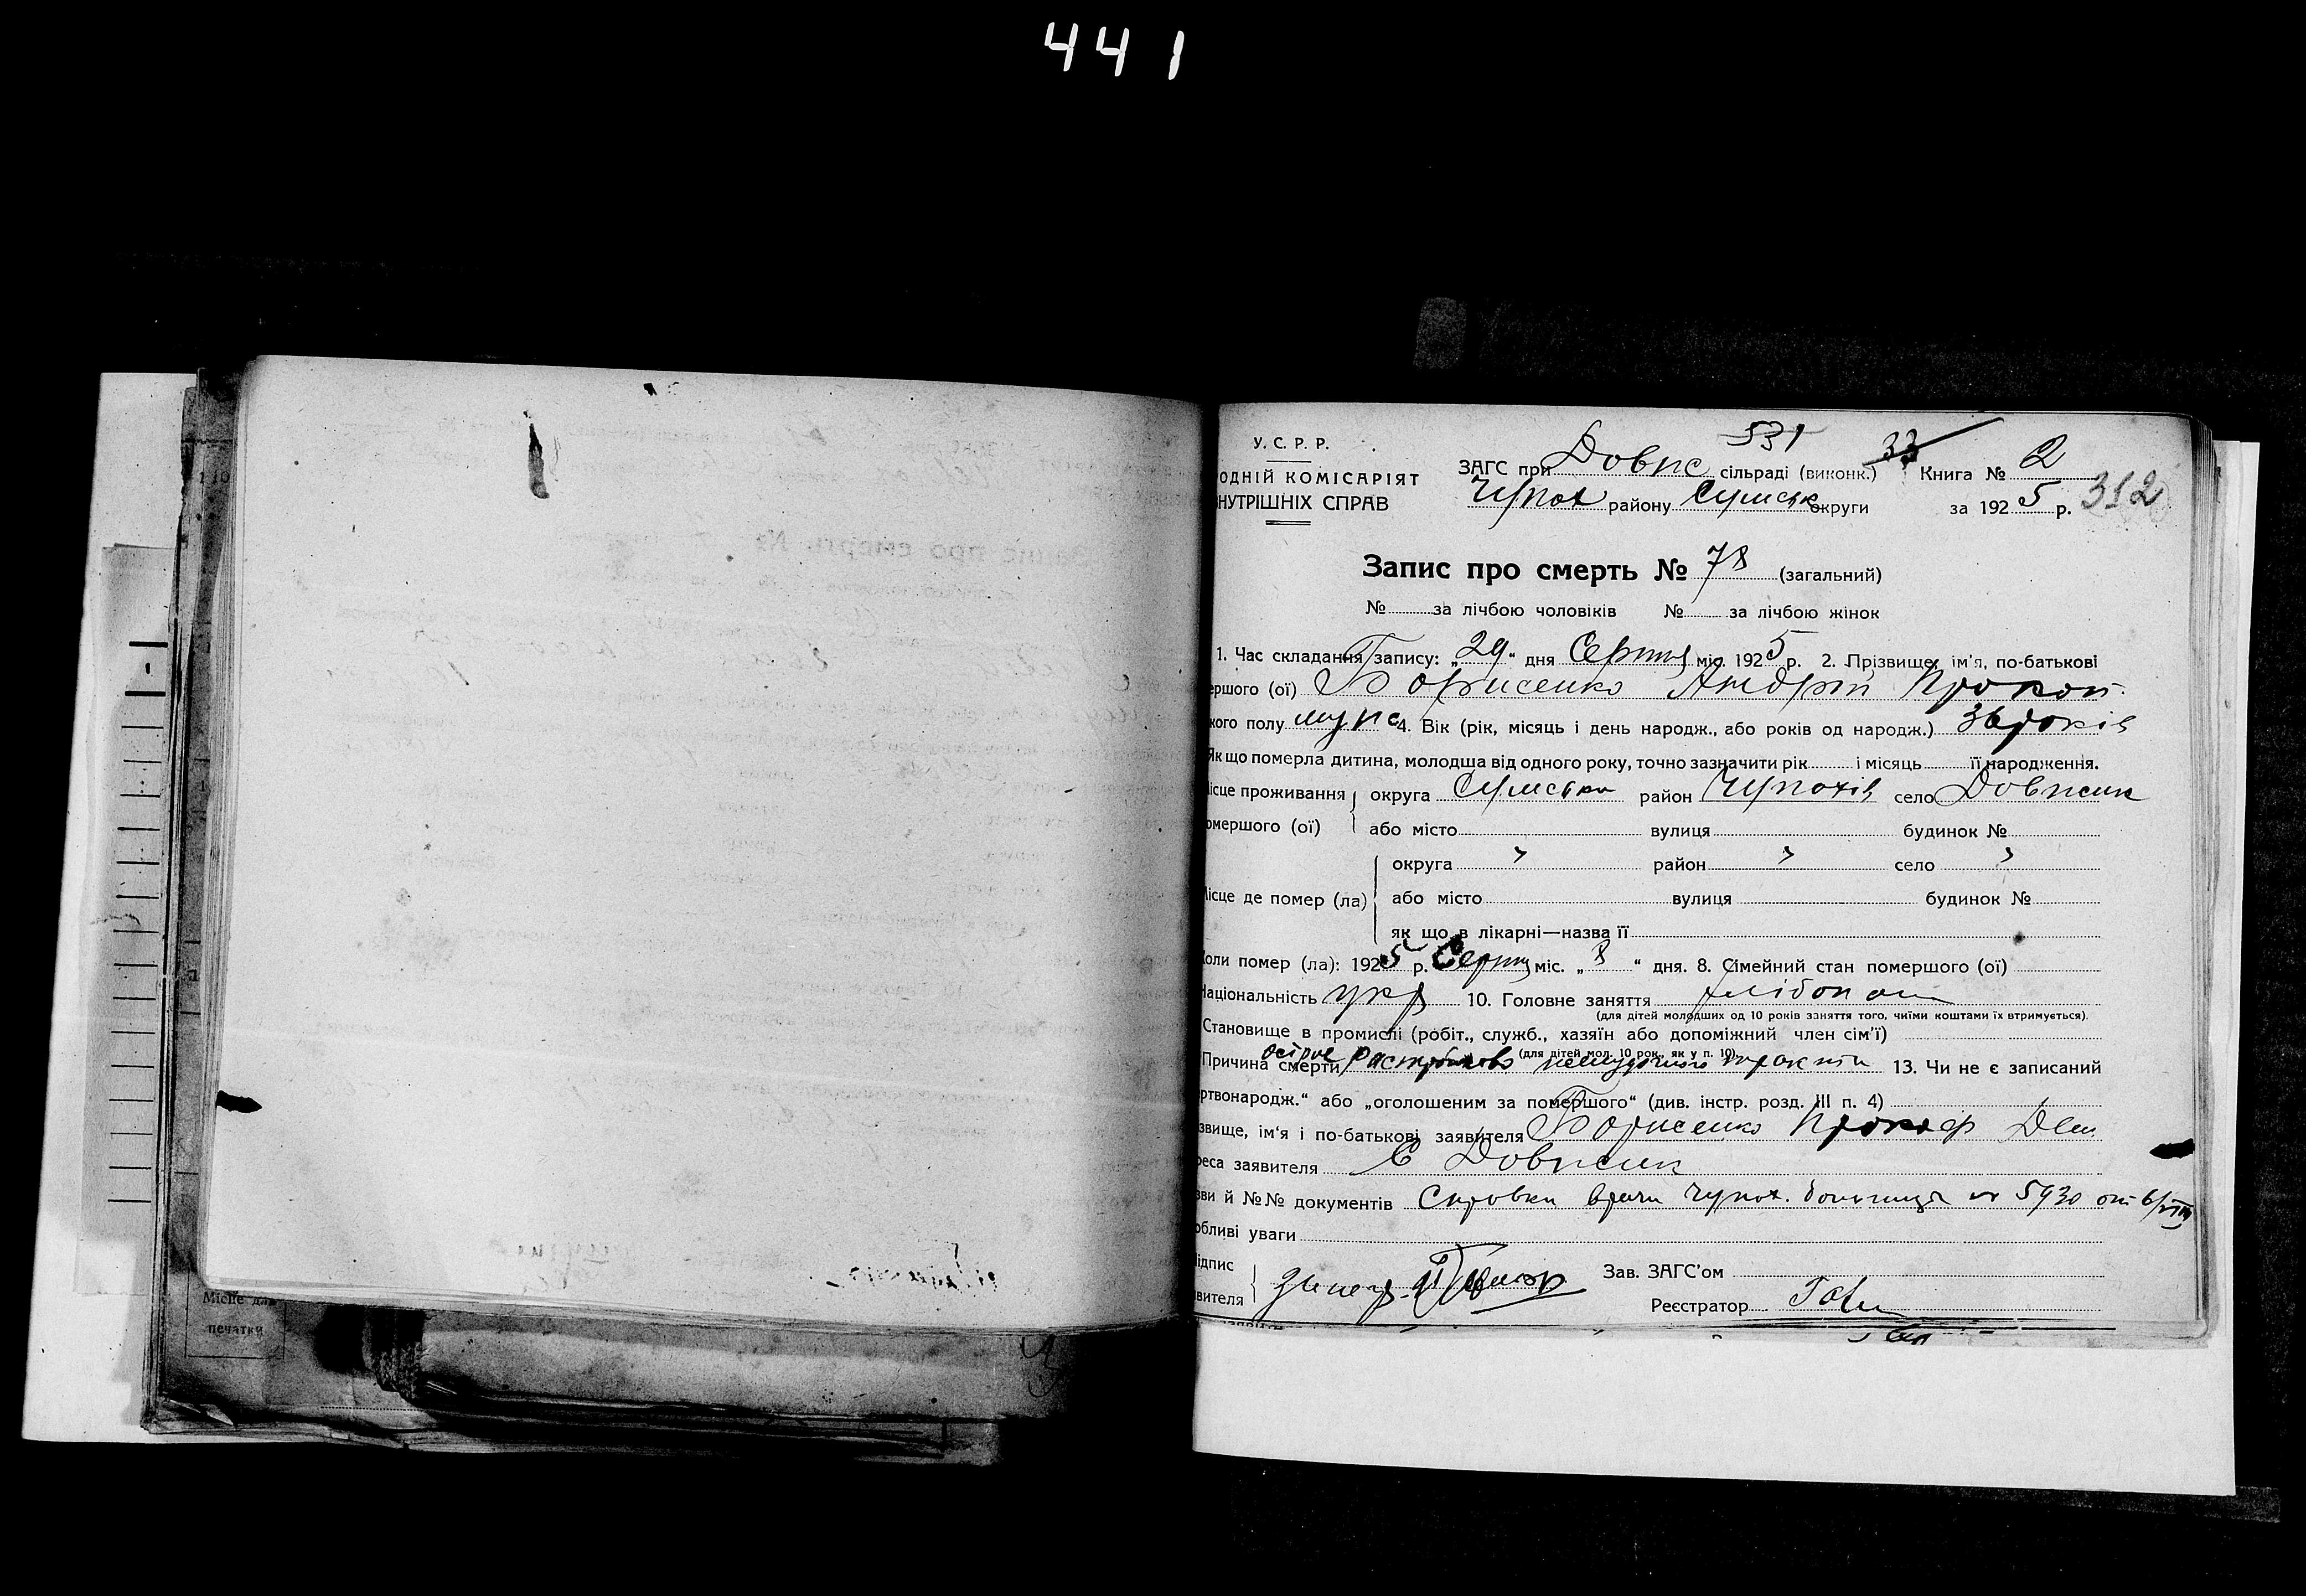 441
У. С. Р. Р.
ОДНІЙ КОМІСАРІЯТ
НУТРІШНІХ СПРАВ
531
33
ЗАГС при Довжс сільраді (виконк.) Книга № 2
Чупах району Сумськ округи за 1925 р. 312
Запис про смерть № 78 (загальний)
№ за лічбою чоловіків № за лічбою жінок
1. Час складання запису: „29“ дня Серпня міс. 1925 р. 2. Прізвище, ім'я, по-батькові
ершого (ої) Борисенко Андрій Прокоп.
кого полу 4. Вік (рік, місяць і день народж., або років од народж.) 36 років
Як що померла дитина, молодша від одного року, точно зазначити рік і місяць її народження.
ісце проживання округа Сумська район село
омершого (ої) або місто вулиця будинок №
округа " район " село "
ісце де помер (ла) або місто вулиця будинок №
як що в лікарні—назва її
оли помер (ла): 1925 р. Серпн міс. „8“ дня. 8. Сімейний стан помершого (ої)
аціональність укр 10. Головне заняття хлібопаш
(для дітей молодших од 10 років заняття того, чиїми коштами їх втримується).
Становище в промислі (робіт., служб., хазяїн або допоміжний член сім'ї)
(для дітей мол. 10 рок., як у п. 10)
Причина смерти 13. Чи не є записаний
ртвонародж.“ або „оголошеним за помершого“ (див. інстр. розд. III п. 4)
звище, ім'я і по-батькові заявителя Борисенко Прокоф Дем.
реса заявителя С
зви й №№ документів Справка врача Чупах. больница № 5930 от 6/VIII
обливі уваги
ідпис Зав. ЗАГС'ом
вителя Реєстратор
Місце для
печатки